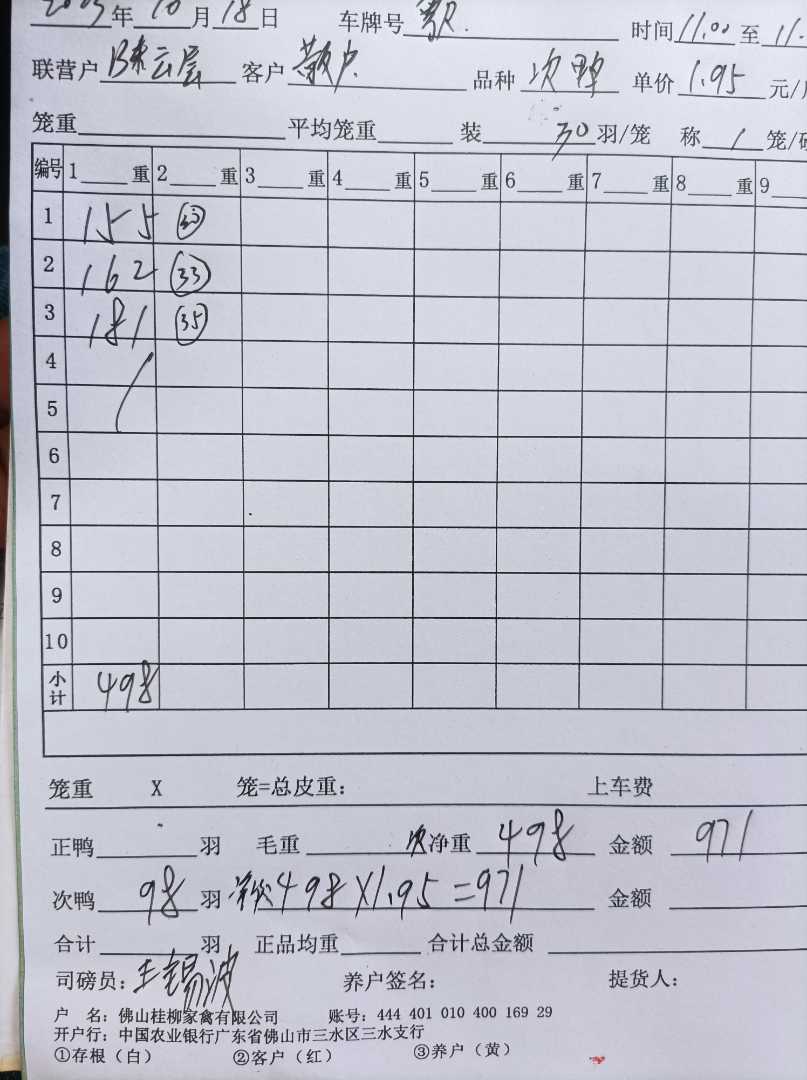 年10月18日 车牌号 时间11.00至11.
联营户 陈云层 客户 散户 品种 次鸭 单价 1.95 元/
笼重 平均笼重 装 30 羽/笼 称 1 笼/
编号 1 重 2 重 3 重 4 重 5 重 6 重 7 重 8 重 9
1 155
2 162 33
3 181 35
4
5
6
7
8
9
10
小计 498
笼重 X 笼=总皮重: 上车费
正鸭 羽 毛重 次净重 498 金额 971
次鸭 98 羽 498X1.95=971 金额
合计 羽 正品均重 合计总金额
司磅员: 王锡波 养户签名: 提货人:
户 名: 佛山桂柳家禽有限公司 账号: 444 401 010 400 169 29
开户行: 中国农业银行广东省佛山市三水区三水支行
①存根(白) ②客户(红) ③养户(黄)